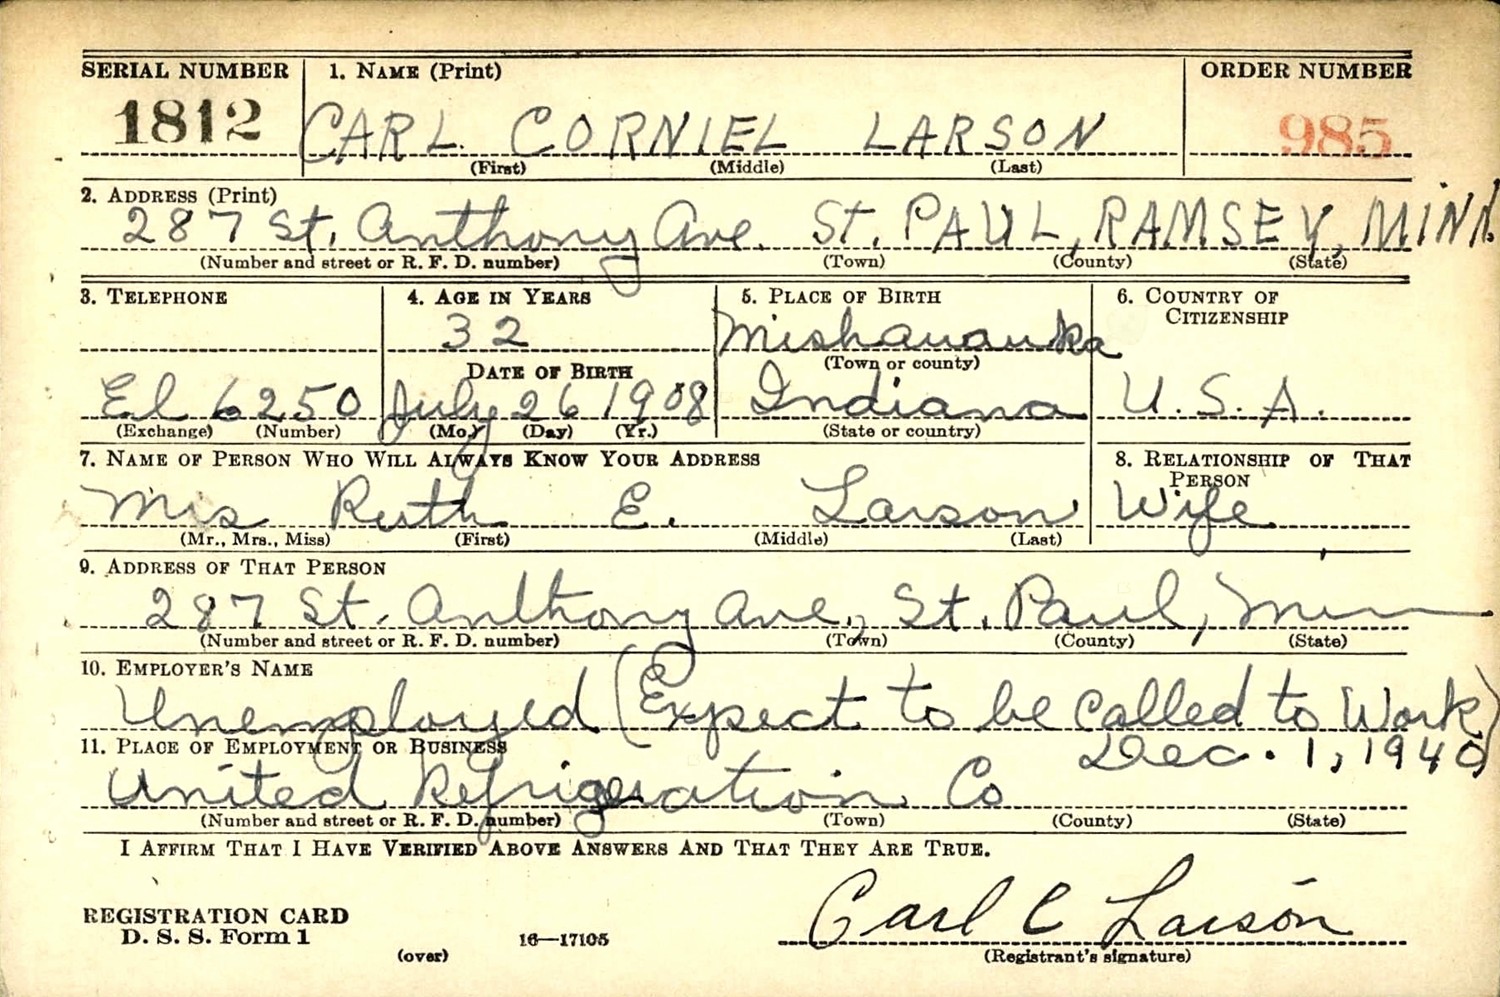 SERIAL NUMBER 1. NAME (Print) ORDER NUMBER
1812 CARL CORNIEL LARSON 985
(First) (Middle) (Last)
2. ADDRESS (Print)
287 St. Anthony Ave. ST. PAUL, RAMSEY, MINN.
(Number and street or R. F. D. number) (Town) (County) (State)
3. TELEPHONE 4. AGE IN YEARS 5. PLACE OF BIRTH 6. COUNTRY OF CITIZENSHIP
32 Mishauauka
(Town or county)
DATE OF BIRTH
El 6250 July 26 1908 Indiana U. S. A.
(Exchange) (Number) (Mo.) (Day) (Yr.) (State or country)
7. NAME OF PERSON WHO WILL ALWAYS KNOW YOUR ADDRESS 8. RELATIONSHIP OF THAT PERSON
Mrs Ruth E. Larson Wife
(Mr., Mrs., Miss) (First) (Middle) (Last)
9. ADDRESS OF THAT PERSON
287 St. Anthony Ave., St. Paul, Minn
(Number and street or R. F. D. number) (Town) (County) (State)
10. EMPLOYER'S NAME
Unemployed (Expect to be called to Work)
11. PLACE OF EMPLOYMENT OR BUSINESS Dec. 1, 1940)
United Refrigeration Co
(Number and street or R. F. D. number) (Town) (County) (State)
I AFFIRM THAT I HAVE VERIFIED ABOVE ANSWERS AND THAT THEY ARE TRUE.
REGISTRATION CARD Carl C Larson
D. S. S. Form 1 16—17105
(over) (Registrant's signature)